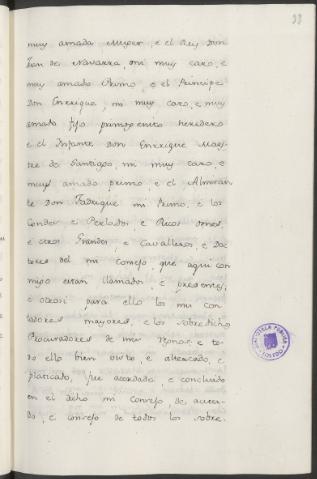 33
muy amada Muger, e el Rey Don
Juan de Navarra, mi muy caro, e
muy amado Primo, e el Principe
Don Enrrique, mi muy caro, e muy
amado fijo primogenito heredero
e el Infante Don Enrrique Maes
tre de Santiago, mi muy caro, e
muy amado primo, e el Almiran
te Don Fadrique mi Primo, e los
Condes e Perlados, e Ricos omes,
e otros Grandes, e Cavalleros, e Doc
tores del mi Consejo, que aqui con
migo estan llamados e presentes,
e otrosi para ello los mis con
tadores mayores, e los sobredichos
Procuradores de mis Reynos, e to
do ello bien visto, e altercado, e
platicado, fue acordado, e concluido
en el dicho mi Consejo, de acuer
do, e consejo de todos los sobre